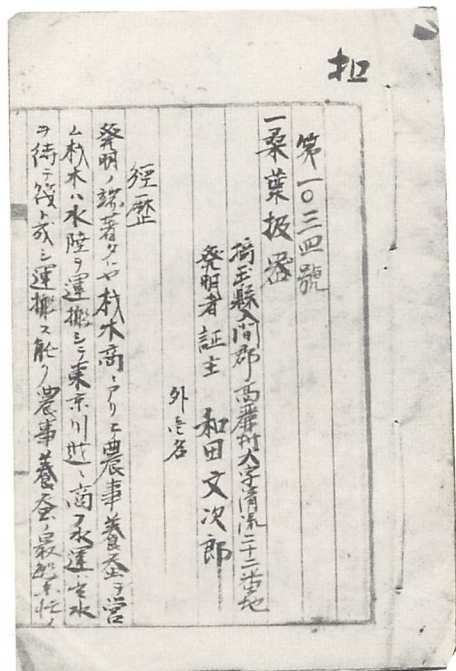 扣
第一〇三四號
一桑葉扱器
埼玉縣入間郡高麗村大字清流二十二番地
発明者 証主 和田文次郎
外壱名
經歴
発明ノ端著タルヤ材木商ニアリテ農事養蚕ヲ営
ム材木ハ水陸ヲ運搬シテ東京川越ニ商フ水運ハ出水
ヲ待テ筏ト成シ運搬ス 農事養蚕ノ最